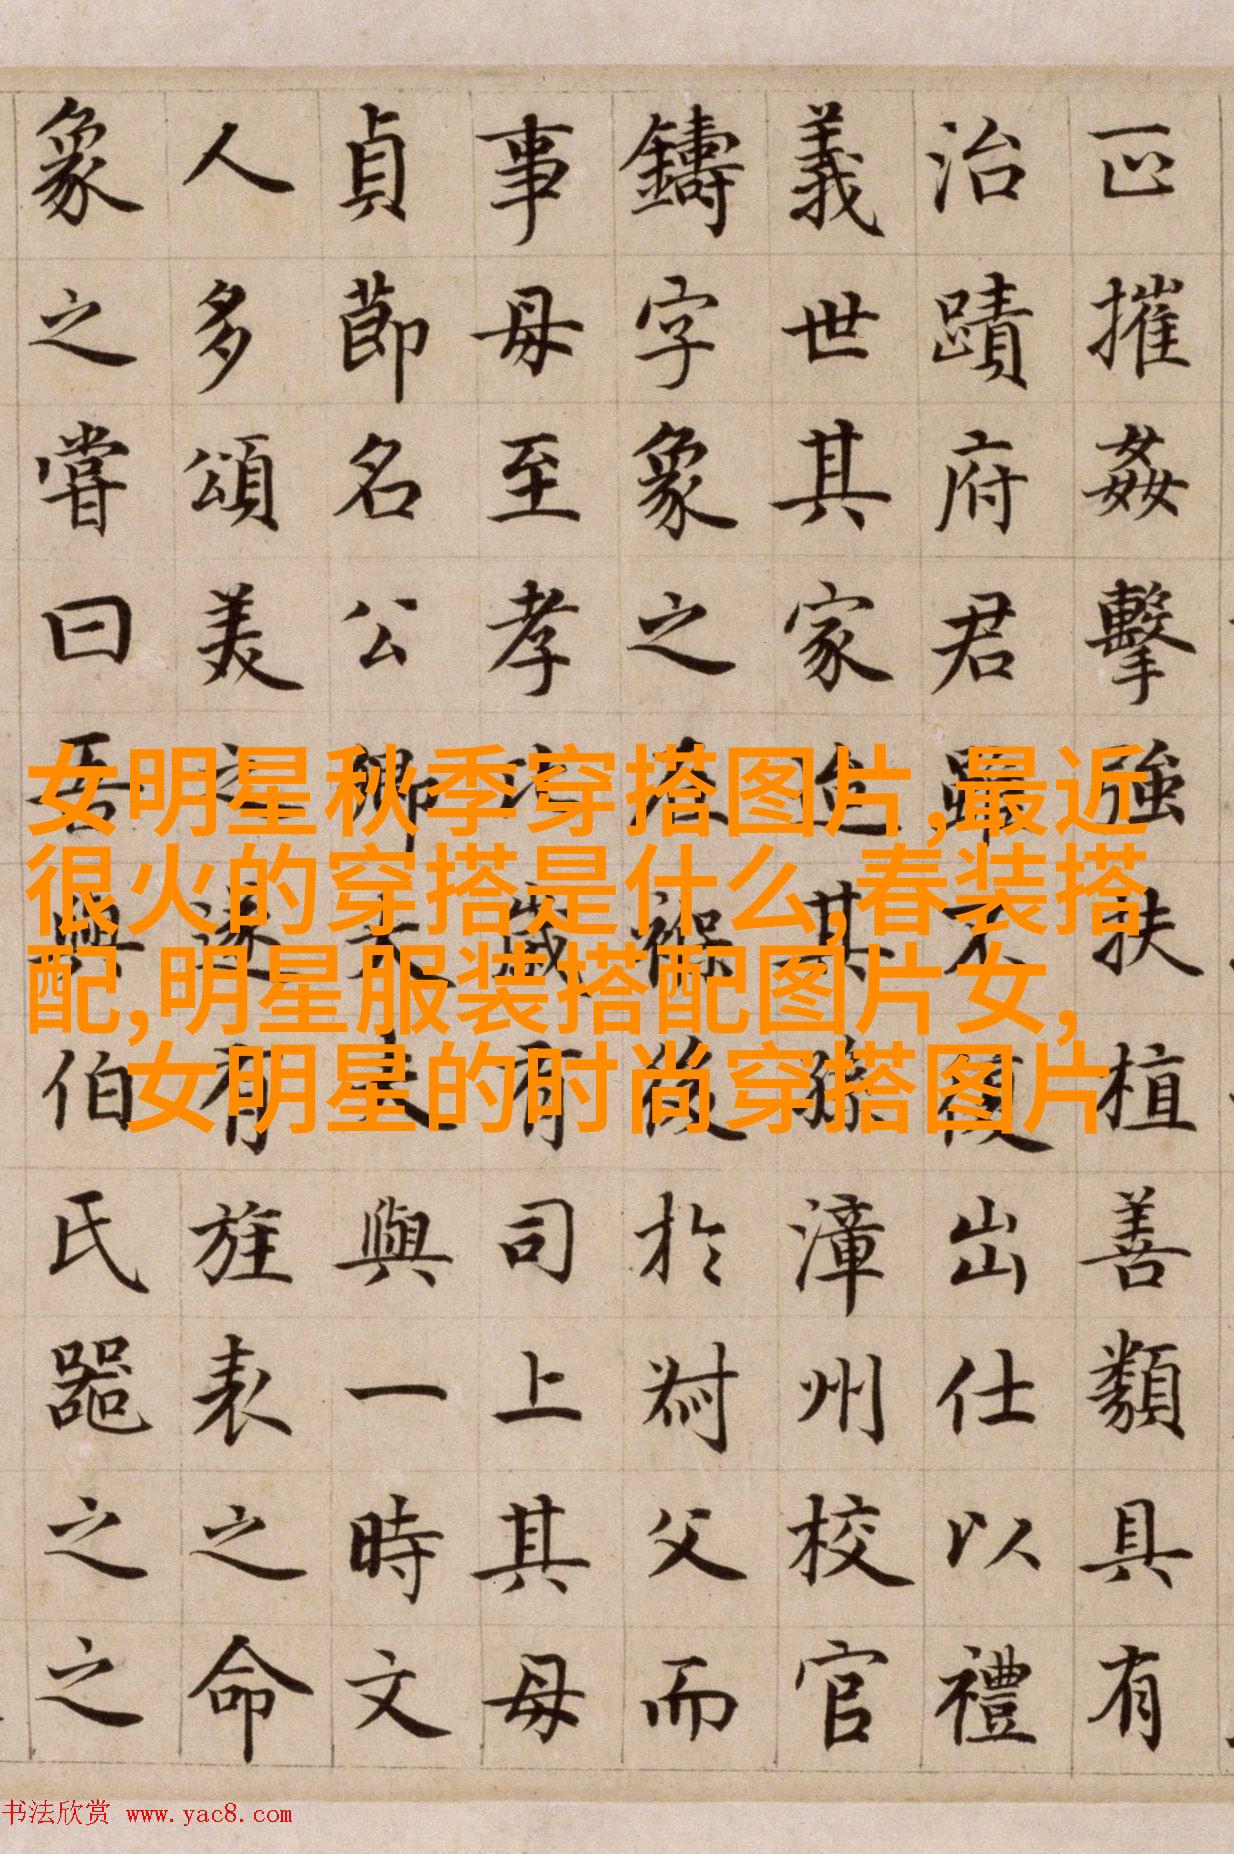 正摧姦擊強扶植善類具有
治蹟府君雖不復出仕以禮
義世其家迨其孫漳州校官
鑄字象之在褓後於父而
事母至孝歲有司上其母
貞節名公卿大夫與一時文
人多頌美之遂有旌表之命
象之嘗曰吾與伯氏器之之
女明星秋季穿搭图片,最近
很火的穿搭是什么,春装搭
配,明星服装搭配图片女,
女明星的时尚穿搭图片
书法欣赏 www.yac8.com